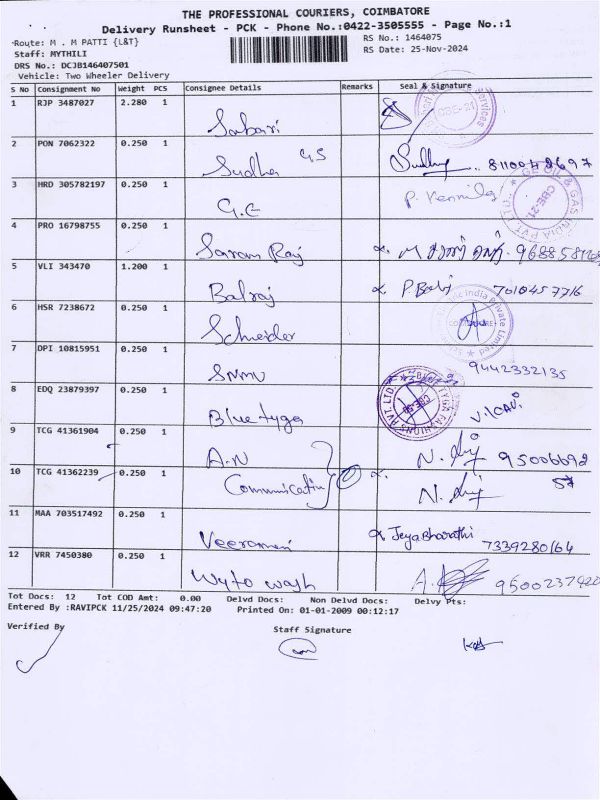 THE PROFESSIONAL COURIERS, COIMBATORE
Delivery Runsheet - PCK - Phone No.:0422-3505555 - Page No.:1
Route: M . M PATTI {L&T}
RS No.: 1464075
Staff: MYTHILI
RS Date: 25-Nov-2024
DRS No.: DCJB146407501
Vehicle: Two Wheeler Delivery
S No Consignment No Weight PCS Consignee Details Remarks Seal & Signature
1 RJP 3487027 2.280 1 Sabari
2 PON 7062322 0.250 1 Sudha GS
3 HRD 305782197 0.250 1 G.E
4 PRO 16798755 0.250 1 Saran Raj
5 VLI 343470 1.200 1 Balraj P. Balaji 7010457716
6 HSR 7238672 0.250 1 Schneider
7 DPI 10815951 0.250 1 SNMV 9442332135
8 EDQ 23879397 0.250 1 Blue tyga
9 TCG 41361904 0.250 1 A.N 95006692
10 TCG 41362239 0.250 1 Communication 57
11 MAA 703517492 0.250 1 Veeramani JeyaBharathi 7339280164
12 VRR 7450380 0.250 1 Wyto wash 9500237920
Tot Docs: 12 Tot COD Amt: 0.00 Delvd Docs: Non Delvd Docs: Delvy Pts:
Entered By :RAVIPCK 11/25/2024 09:47:20 Printed On: 01-01-2009 00:12:17
Verified By Staff Signature